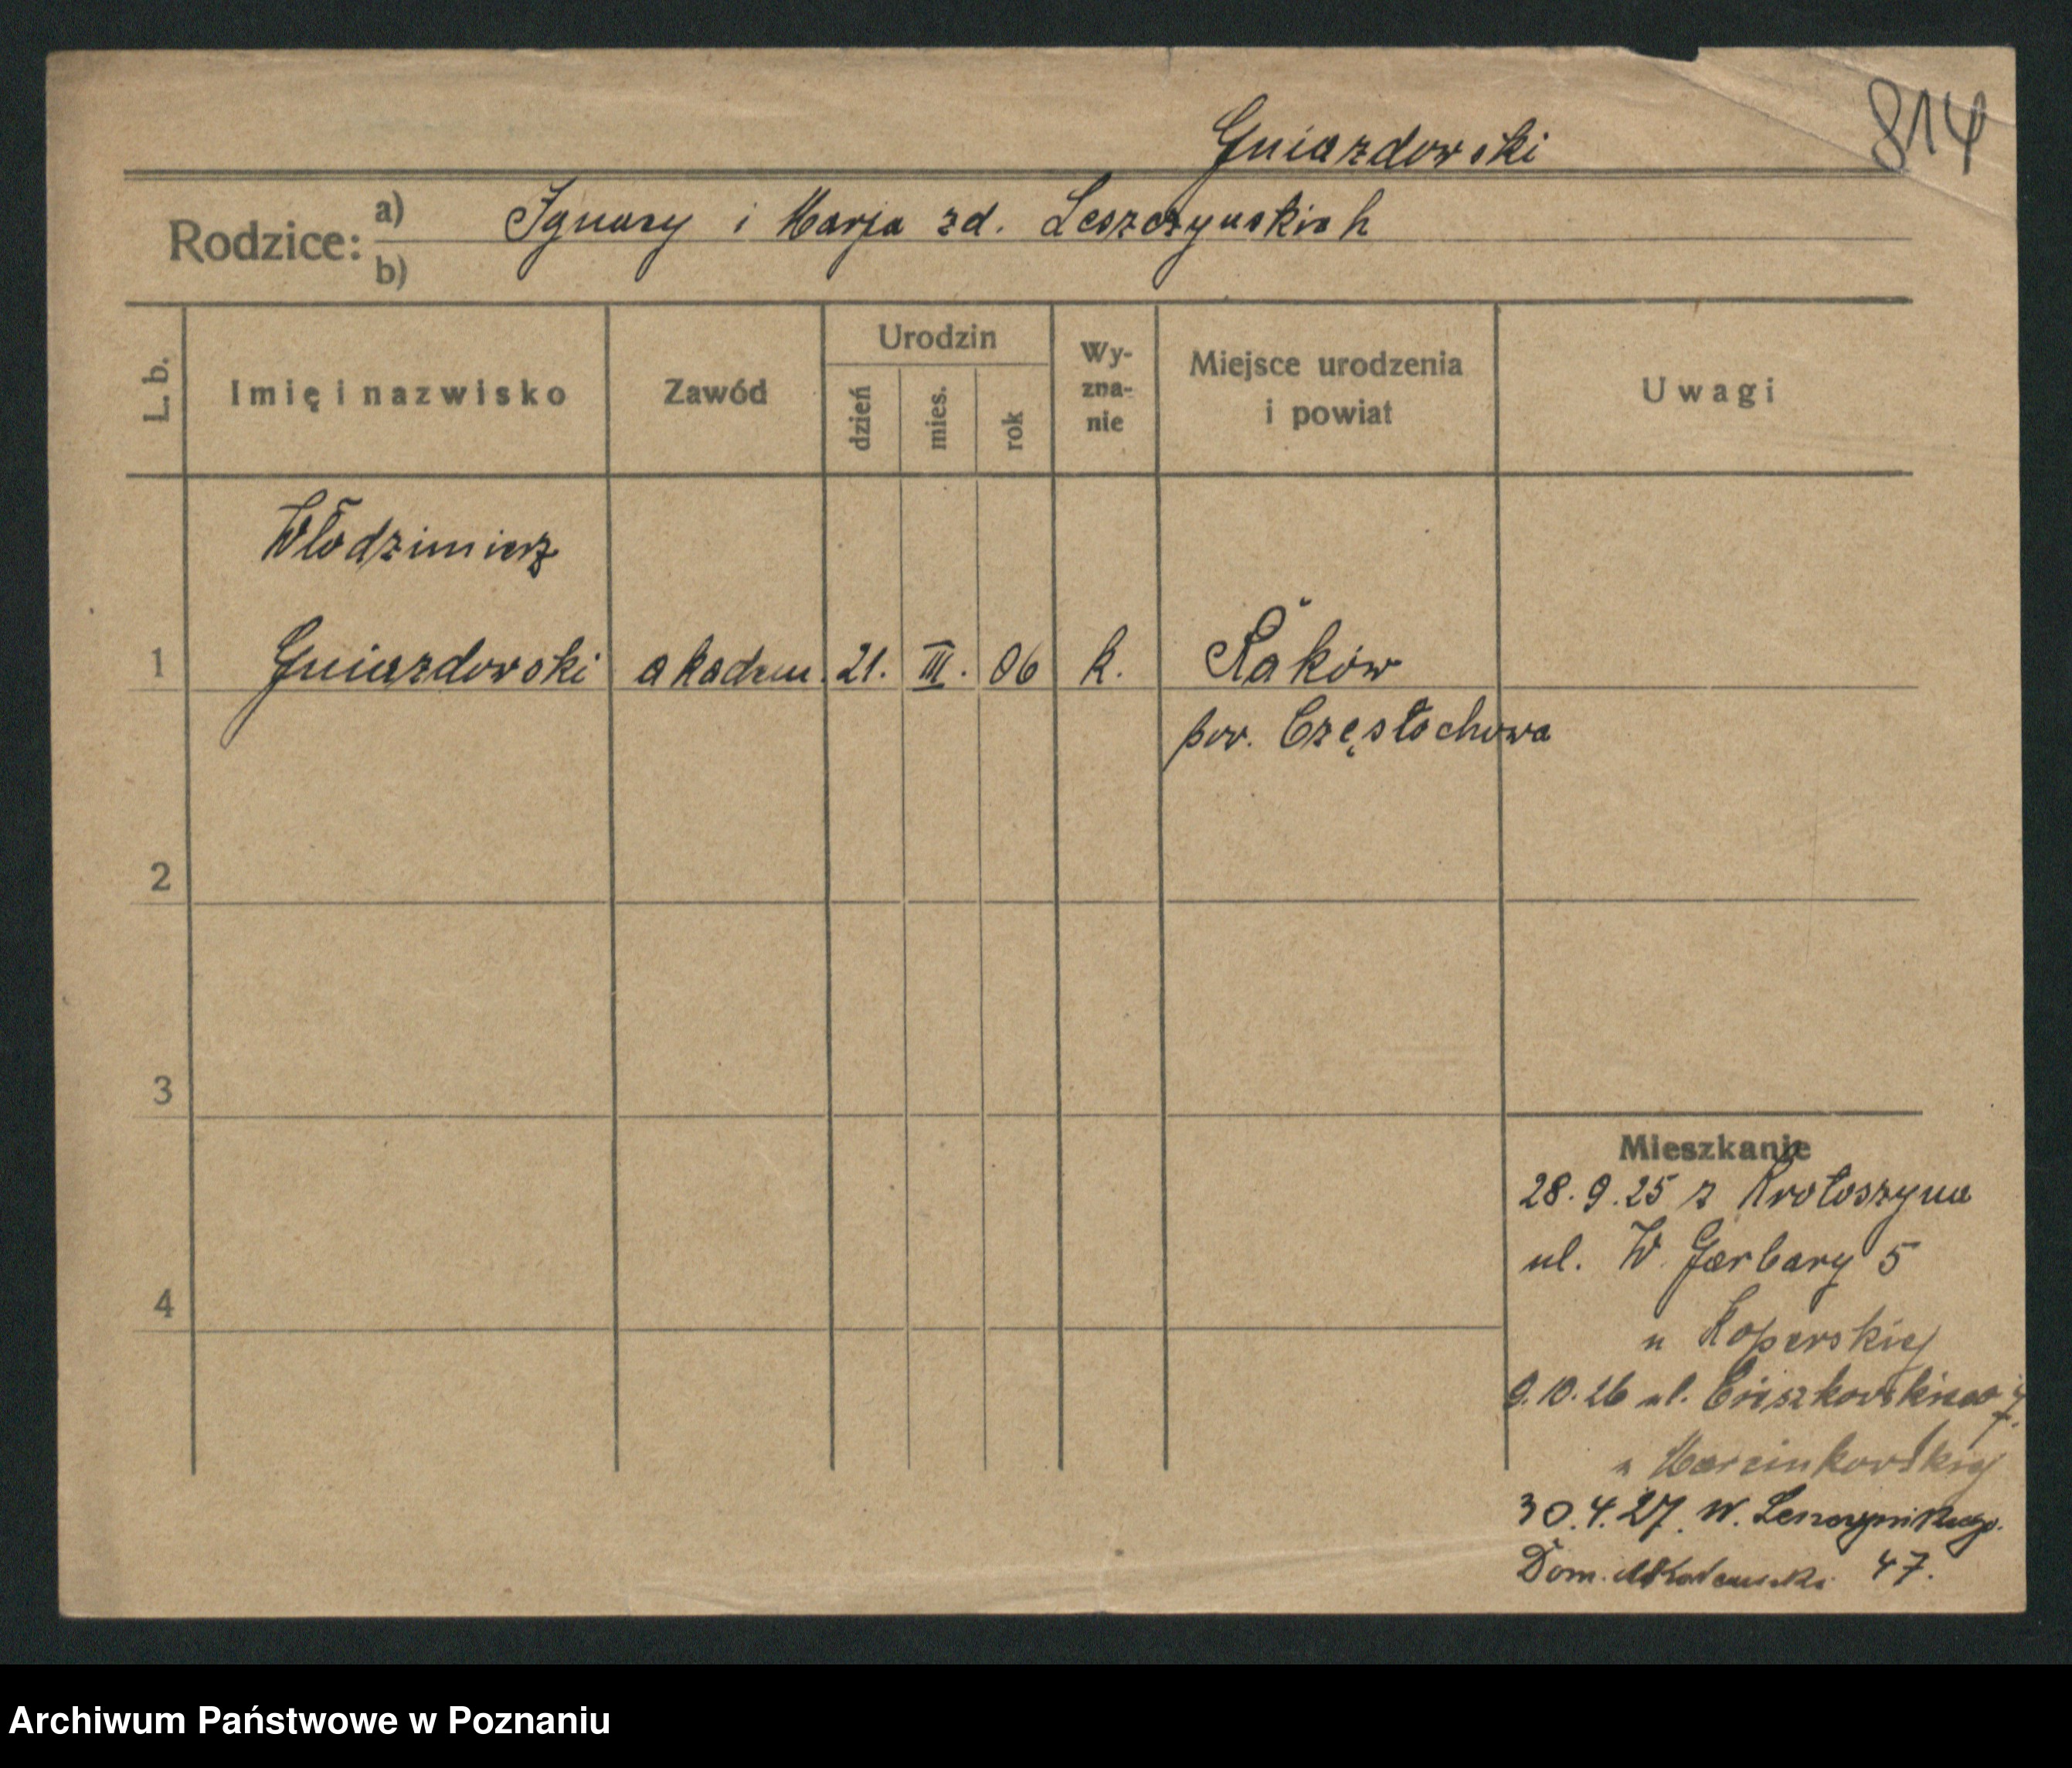 Gniazdowski
814
Rodzice:
a) Ignacy i Marja zd. Leszczyńskich
b)
L. b.
Imię i nazwisko
Zawód
Urodzin
dzień
mies.
rok
Wy-
zna-
nie
Miejsce urodzenia
i powiat
Uwagi
Włodzimierz
1 Gniazdowski akadem. 21. III. 06 k. Raków
pow. Częstochowa
2
3
4
Mieszkanie
28.9.25 z Krotoszyna
ul. W. Garbary 5
u Koperskiej
9.10.26 ul.
u Marcinkowskiej
30.4.27. W. Leszczyńskiego.
Dom. Akademicki 47.
Archiwum Państwowe w Poznaniu